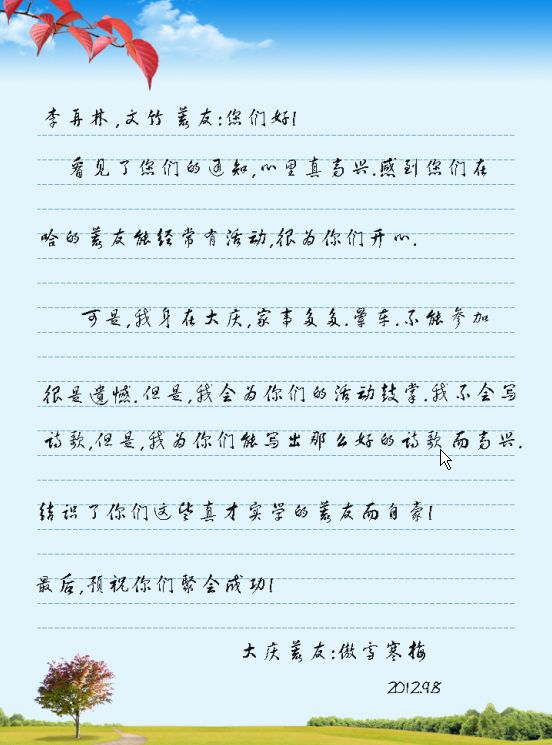 李再林,文竹善友:您们好!
看见了您们的通知,心里真高兴.感到您们在
哈的善友能经常有活动,很为你们开心.
可是,我身在大庆,家事多多.晕车.不能参加
很是遗憾.但是,我会为你们的活动鼓掌.我不会写
诗歌,但是,我为你们能写出那么好的诗歌而高兴.
结识了你们这些真才实学的善友而自豪!
最后,预祝你们聚会成功!
大庆善友:傲雪寒梅
2012.9.8